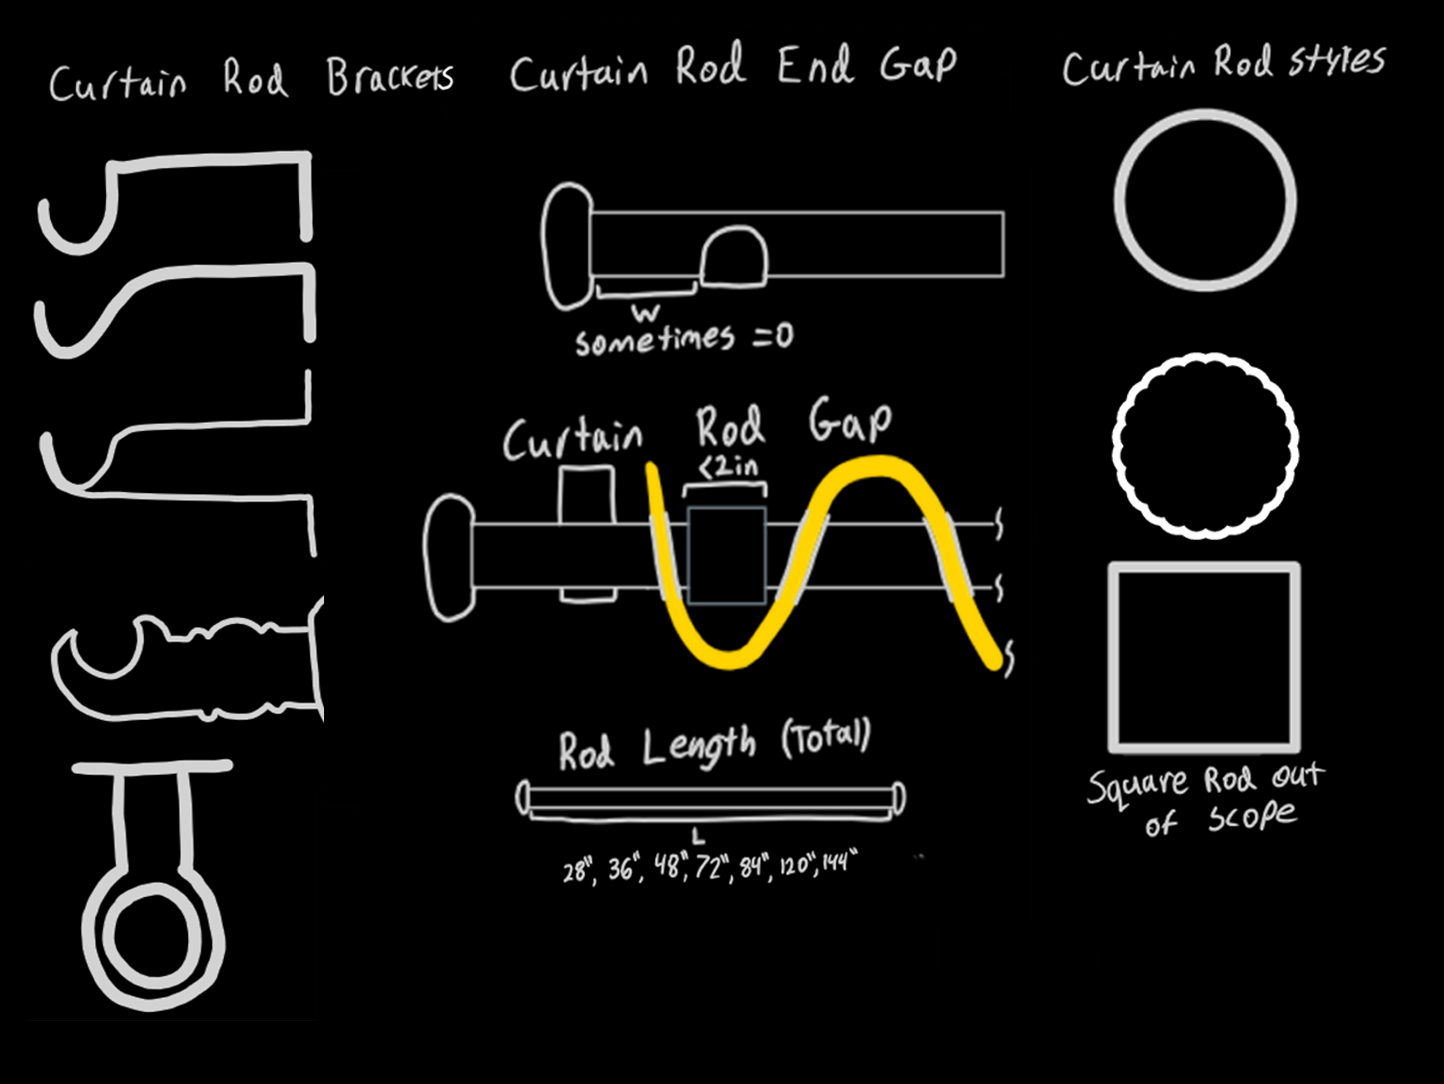 Curtain Rod Brackets
Curtain Rod End Gap
W
sometimes =0
Curtain Rod Gap
<2in
Rod Length (Total)
L
28", 36", 48", 72", 84", 120", 144"
Curtain Rod styles
Square Rod out
of scope